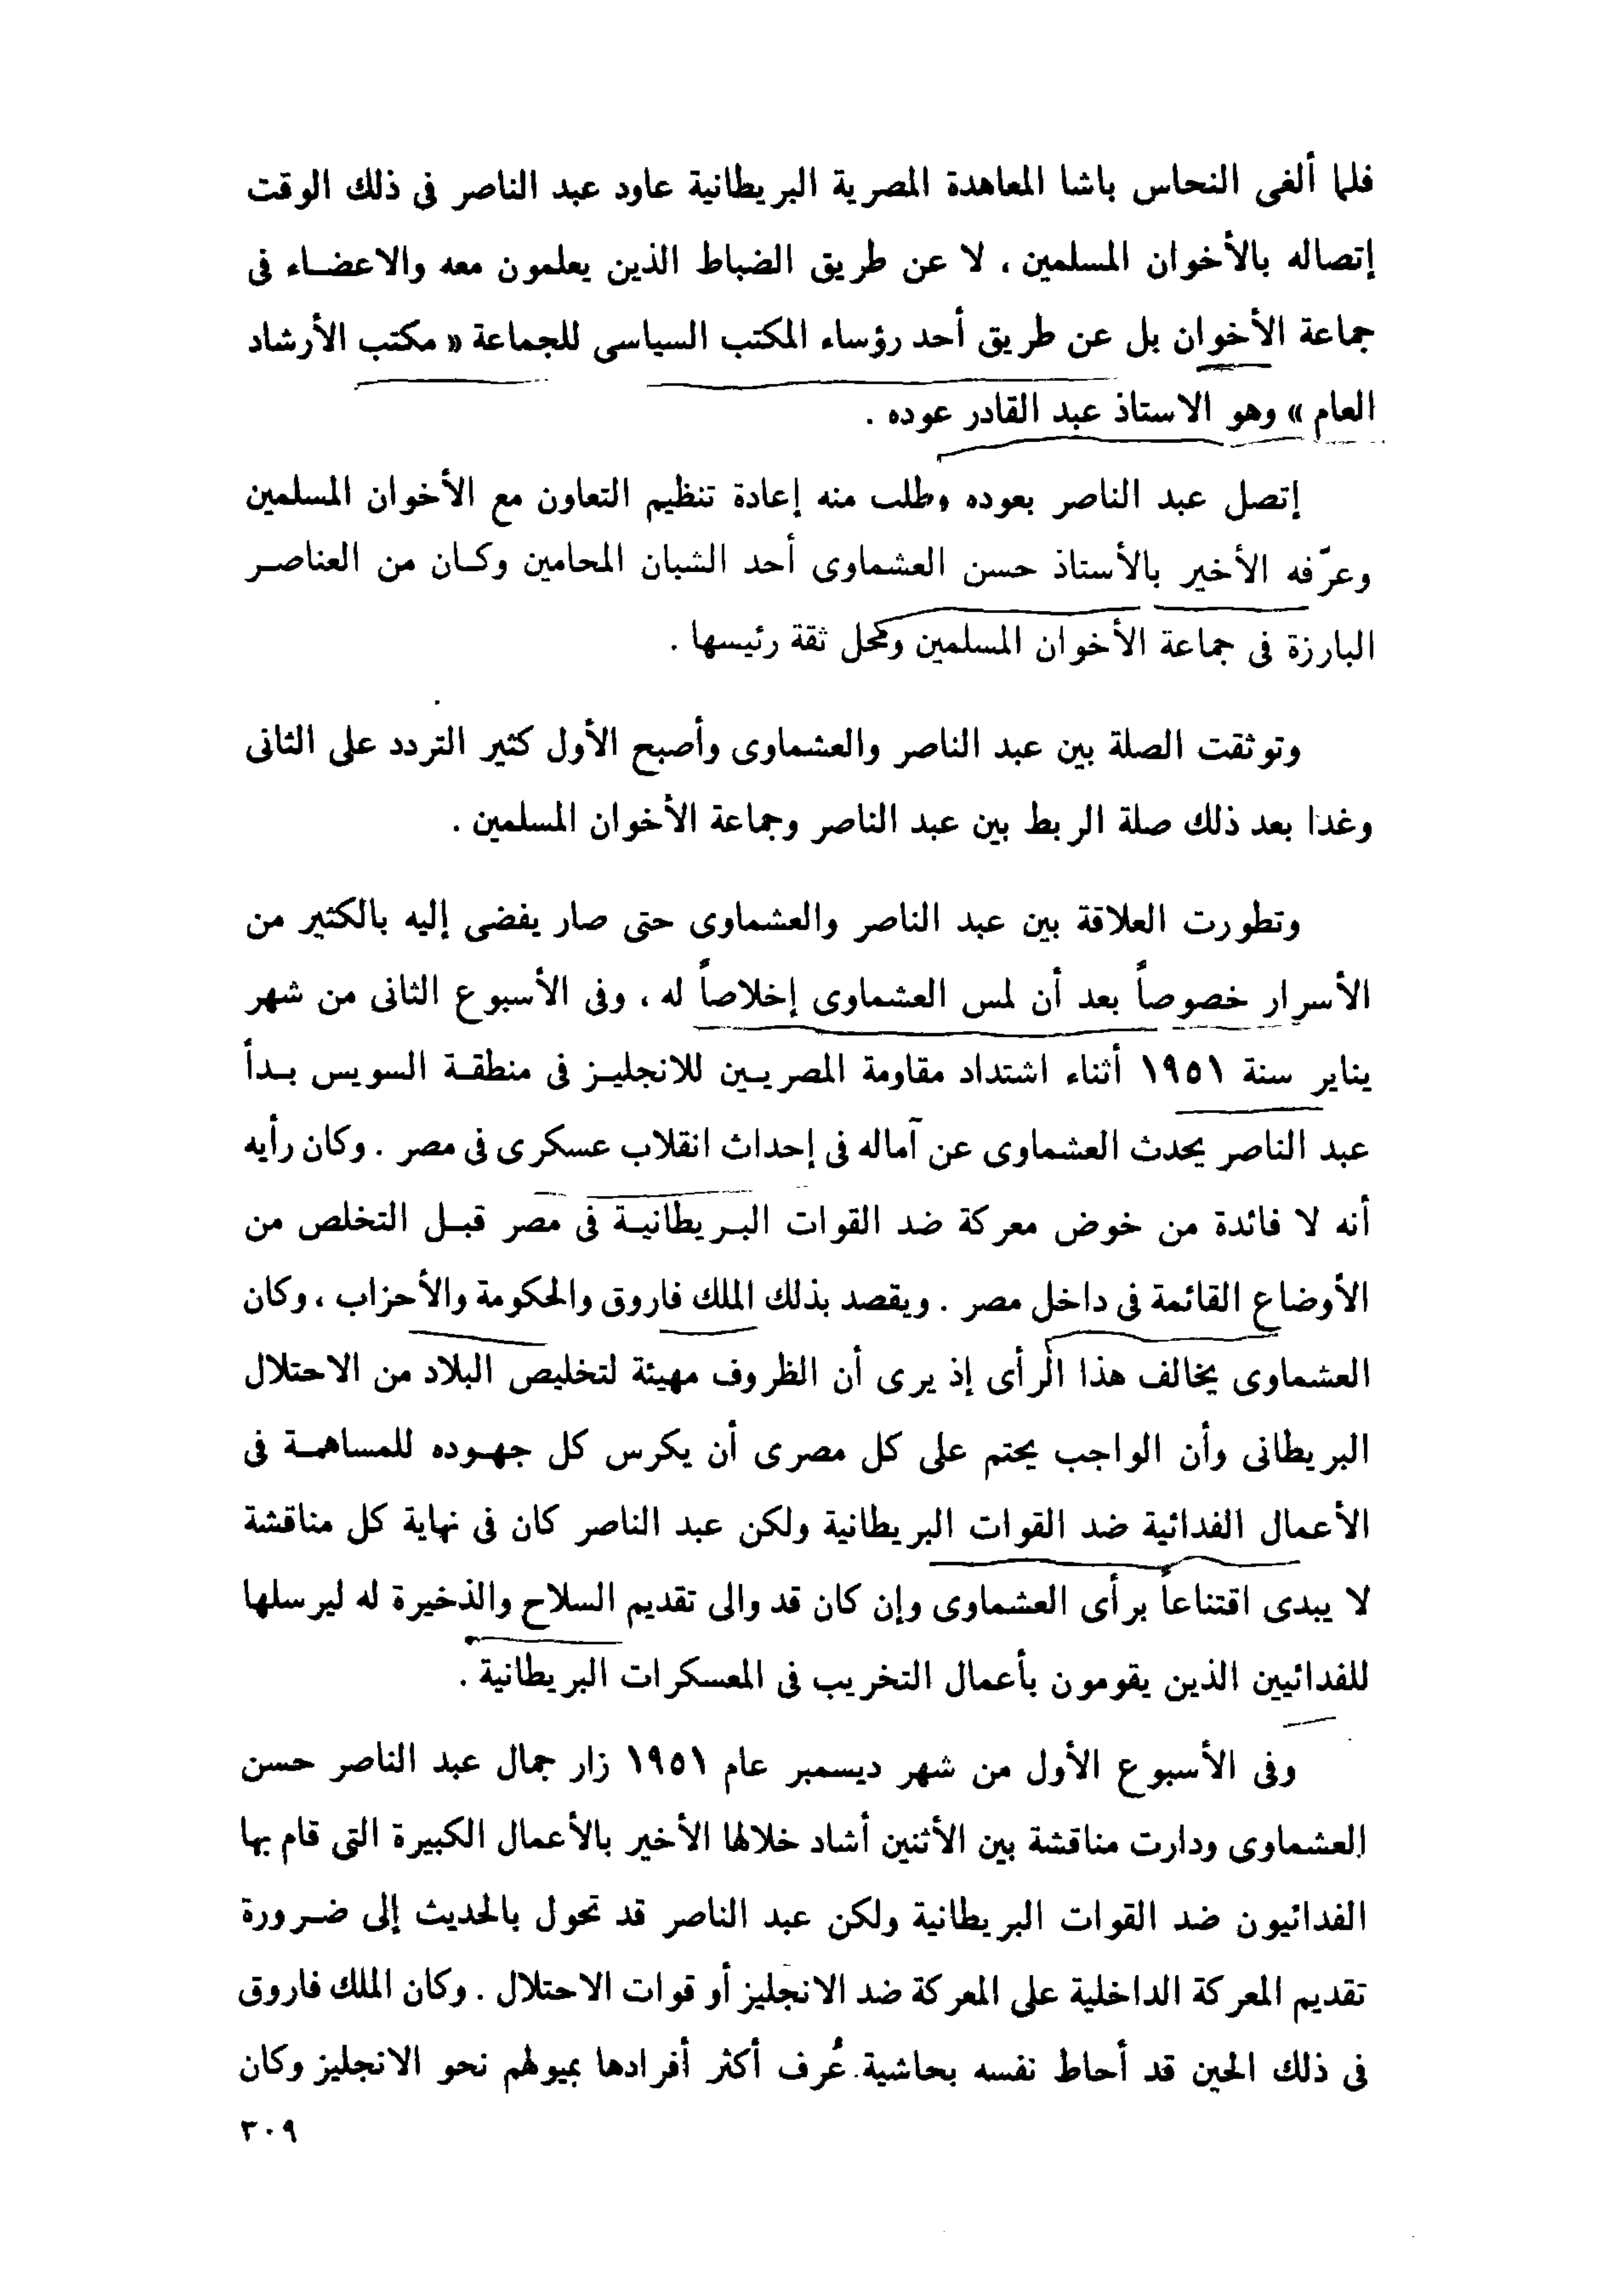 فلما ألغى النحاس باشا المعاهدة المصرية البريطانية عاود عبد الناصر فى ذلك الوقت
إتصاله بالأخوان المسلمين ، لا عن طريق الضباط الذين يعلمون معه والاعضاء فى
جماعة الأخوان بل عن طريق أحد رؤساء المكتب السياسى للجماعة « مكتب الأرشاد
العام » وهو الاستاذ عبد القادر عوده .
إتصل عبد الناصر بعوده وطلب منه إعادة تنظيم التعاون مع الأخوان المسلمين
وعرّفه الأخير بالأستاذ حسن العشماوى أحد الشبان المحامين وكان من العناصر
البارزة فى جماعة الأخوان المسلمين ومحل ثقة رئيسها .
وتوثقت الصلة بين عبد الناصر والعشماوى وأصبح الأول كثير التردد على الثانى
وغدا بعد ذلك صلة الربط بين عبد الناصر وجماعة الأخوان المسلمين .
وتطورت العلاقة بين عبد الناصر والعشماوى حتى صار يفضى إليه بالكثير من
الأسرار خصوصاً بعد أن لمس العشماوى إخلاصاً له ، وفى الأسبوع الثانى من شهر
يناير سنة ١٩٥١ أثناء اشتداد مقاومة المصريين للانجليز فى منطقة السويس بدأ
عبد الناصر يحدث العشماوى عن آماله فى إحداث انقلاب عسكرى فى مصر . وكان رأيه
أنه لا فائدة من خوض معركة ضد القوات البريطانية فى مصر قبل التخلص من
الأوضاع القائمة فى داخل مصر . ويقصد بذلك الملك فاروق والحكومة والأحزاب ، وكان
العشماوى يخالف هذا الرأى إذ يرى أن الظروف مهيئة لتخليص البلاد من الاحتلال
البريطانى وأن الواجب يحتم على كل مصرى أن يكرس كل جهوده للمساهمة فى
الأعمال الفدائية ضد القوات البريطانية ولكن عبد الناصر كان فى نهاية كل مناقشة
لا يبدى اقتناعاً برأى العشماوى وإن كان قد والى تقديم السلاح والذخيرة له ليرسلها
للفدائيين الذين يقومون بأعمال التخريب فى المعسكرات البريطانية .
وفى الأسبوع الأول من شهر ديسمبر عام ١٩٥١ زار جمال عبد الناصر حسن
العشماوى ودارت مناقشة بين الأثنين أشاد خلالها الأخير بالأعمال الكبيرة التى قام بها
الفدائيون ضد القوات البريطانية ولكن عبد الناصر قد تحول بالحديث إلى ضرورة
تقديم المعركة الداخلية على المعركة ضد الانجليز أو قوات الاحتلال . وكان الملك فاروق
فى ذلك الحين قد أحاط نفسه بحاشية عُرف أكثر أفرادها بميولهم نحو الانجليز وكان
٣٠٩